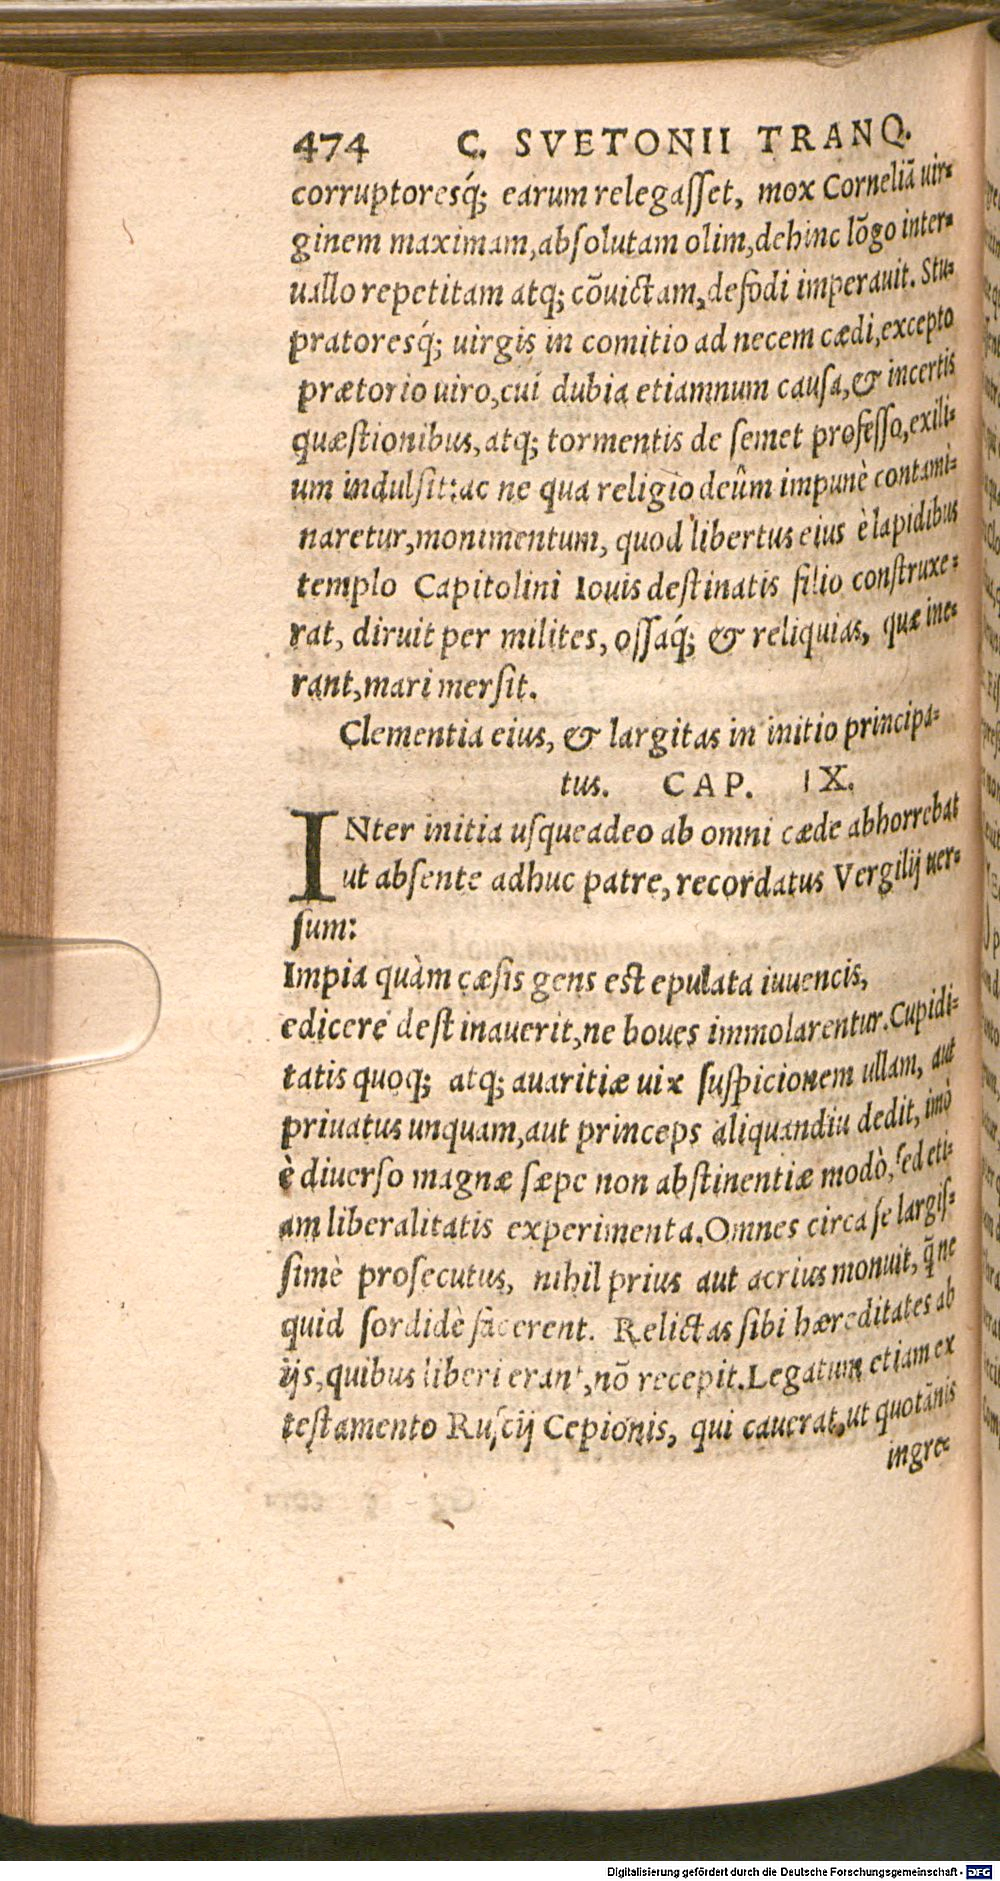 474 C. SVETONII TRANQ.
corruptoresq́; earum relegaſſet, mox Corneliā uir⸗
ginem maximam, abſolutam olim, dehinc lōgo inter⸗
uallo repetitam atq; cōuictam, defodi imperauit. Stu⸗
pratoresq́; uirgis in comitio ad necem cædi, excepto
prætorio uiro, cui dubia etiamnum cauſa, & incertis
quæſtionibus, atq; tormentis de ſemet profeſſo, exili⸗
um indulſit: ac ne qua religio deûm impunè contami⸗
naretur, monimentum, quod libertus eius è lapidibus
templo Capitolini Iouis deſtinatis filio conſtruxe⸗
rat, diruit per milites, oſſaq́; & reliquias, quæ ine⸗
rant, mari merſit.
Clementia eius, & largitas in initio principa⸗
tus. CAP. IX.
INter initia uſqueadeo ab omni cæde abhorrebat
ut abſente adhuc patre, recordatus Vergilij uer⸗
ſum:
Impia quàm cæſis gens eſt epulata iuuencis,
edicere deſtinauerit, ne boues immolarentur. Cupidi⸗
tatis quoq; atq; auaritiæ uix ſuſpicionem ullam, aut
priuatus unquam, aut princeps aliquandiu dedit, imò
è diuerſo magnæ ſæpe non abſtinentiæ modò, ſed eti⸗
am liberalitatis experimenta. Omnes circa ſe largiſ⸗
ſimè proſecutus, nihil prius aut acrius monuit, q̃ ne
quid ſordidè facerent. Relictas ſibi hæreditates ab
ijs, quibus liberi erant, nō recepit. Legatum etiam ex
teſtamento Ruſcij Cepionis, qui cauerat, ut quotānis
ingre⸗
Digitalisierung gefördert durch die Deutsche Forschungsgemeinschaft - DFG